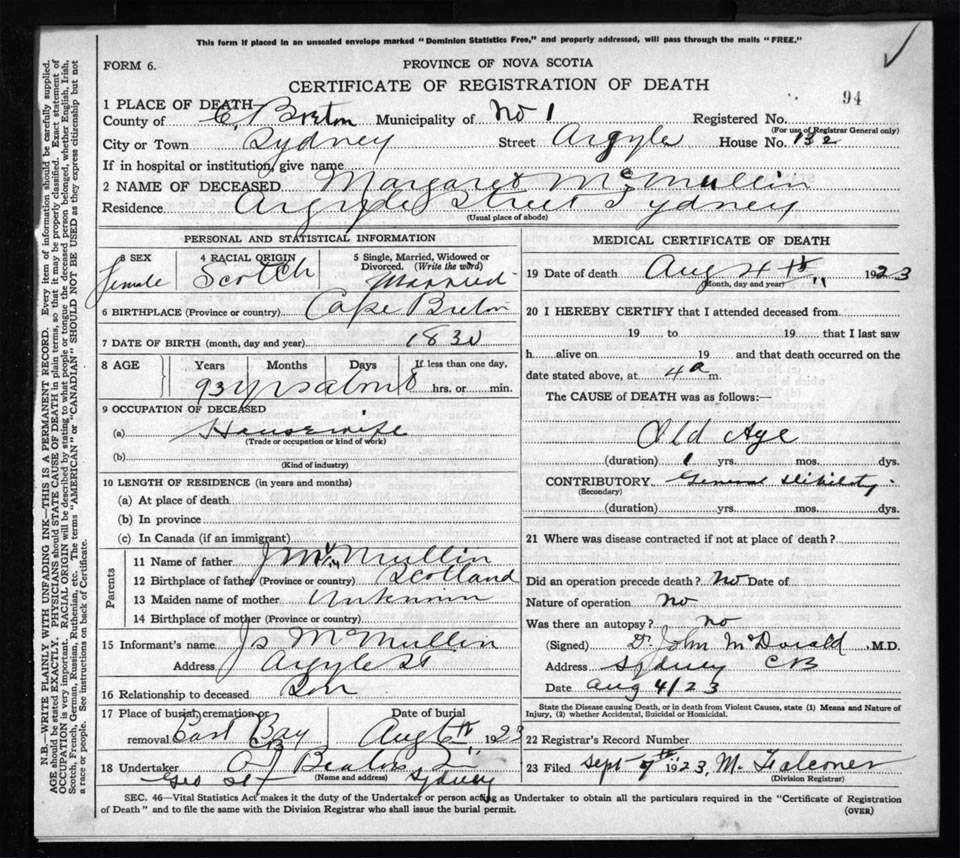 This form if placed in an unsealed envelope marked "Dominion Statistics Free," and properly addressed, will pass through the mails "FREE."
FORM 6. PROVINCE OF NOVA SCOTIA
CERTIFICATE OF REGISTRATION OF DEATH
94
1 PLACE OF DEATH—
County of C. Breton Municipality of No 1 Registered No.
(For use of Registrar General only)
City or Town Sydney Street Argyle House No. 132
If in hospital or institution, give name
2 NAME OF DECEASED Margaret McMullin
Residence Argyle Street Sydney
(Usual place of abode)
PERSONAL AND STATISTICAL INFORMATION
3 SEX female 4 RACIAL ORIGIN Scotch 5 Single, Married, Widowed or Divorced. (Write the word) Married
6 BIRTHPLACE (Province or country) Cape Breton
7 DATE OF BIRTH (month, day and year) 1830
8 AGE Years Months Days If less than one day,
93 yrs about hrs. or min.
9 OCCUPATION OF DECEASED
(a) Housewife
(Trade or occupation or kind of work)
(b)
(Kind of industry)
10 LENGTH OF RESIDENCE (in years and months)
(a) At place of death
(b) In province
(c) In Canada (if an immigrant)
Parents
11 Name of father J McMullin
12 Birthplace of father (Province or country) Scotland
13 Maiden name of mother Unknown
14 Birthplace of mother (Province or country)
15 Informant's name Js McMullin
Address Argyle St
16 Relationship to deceased Son
17 Place of burial, cremation or removal East Bay CB Date of burial Aug 6th 1923
18 Undertaker A J Beaton
(Name and address)
Geo St Sydney
MEDICAL CERTIFICATE OF DEATH
19 Date of death Aug 4th 1923
(Month, day and year)
20 I HEREBY CERTIFY that I attended deceased from
19 to 19 that I last saw
h alive on 19 and that death occurred on the
date stated above, at 4 a m.
The CAUSE of DEATH was as follows:—
Old Age
(duration) 1 yrs. mos. dys.
CONTRIBUTORY. General Debility
(Secondary)
(duration) yrs. mos. dys.
21 Where was disease contracted if not at place of death?
Did an operation precede death? No Date of
Nature of operation no
Was there an autopsy? no
(Signed) Dr. John McDonald , M.D.
Address Sydney CB
Date Aug 4/23
State the Disease causing Death, or in death from Violent Causes, state (1) Means and Nature of
Injury, (2) whether Accidental, Suicidal or Homicidal.
22 Registrar's Record Number
23 Filed Sept 7th 1923, M. Falconer
(Division Registrar)
SEC. 46—Vital Statistics Act makes it the duty of the Undertaker or person acting as Undertaker to obtain all the particulars required in the "Certificate of Registration
of Death" and to file the same with the Division Registrar who shall issue the burial permit. (OVER)
N.B.—WRITE PLAINLY WITH UNFADING INK—THIS IS A PERMANENT RECORD. Every item of information should be carefully supplied.
AGE should be stated EXACTLY. PHYSICIANS should STATE CAUSE OF DEATH in plain terms, so that it may be properly classified. Exact statement of
OCCUPATION is very important. RACIAL ORIGIN will be described by stating to what people or tongue the deceased person belonged, whether English, Irish,
Scotch, French, German, Russian, Ruthenian, etc. The terms "AMERICAN" or "CANADIAN" SHOULD NOT BE USED as they express citizenship but not
a race or people. See instructions on back of Certificate.